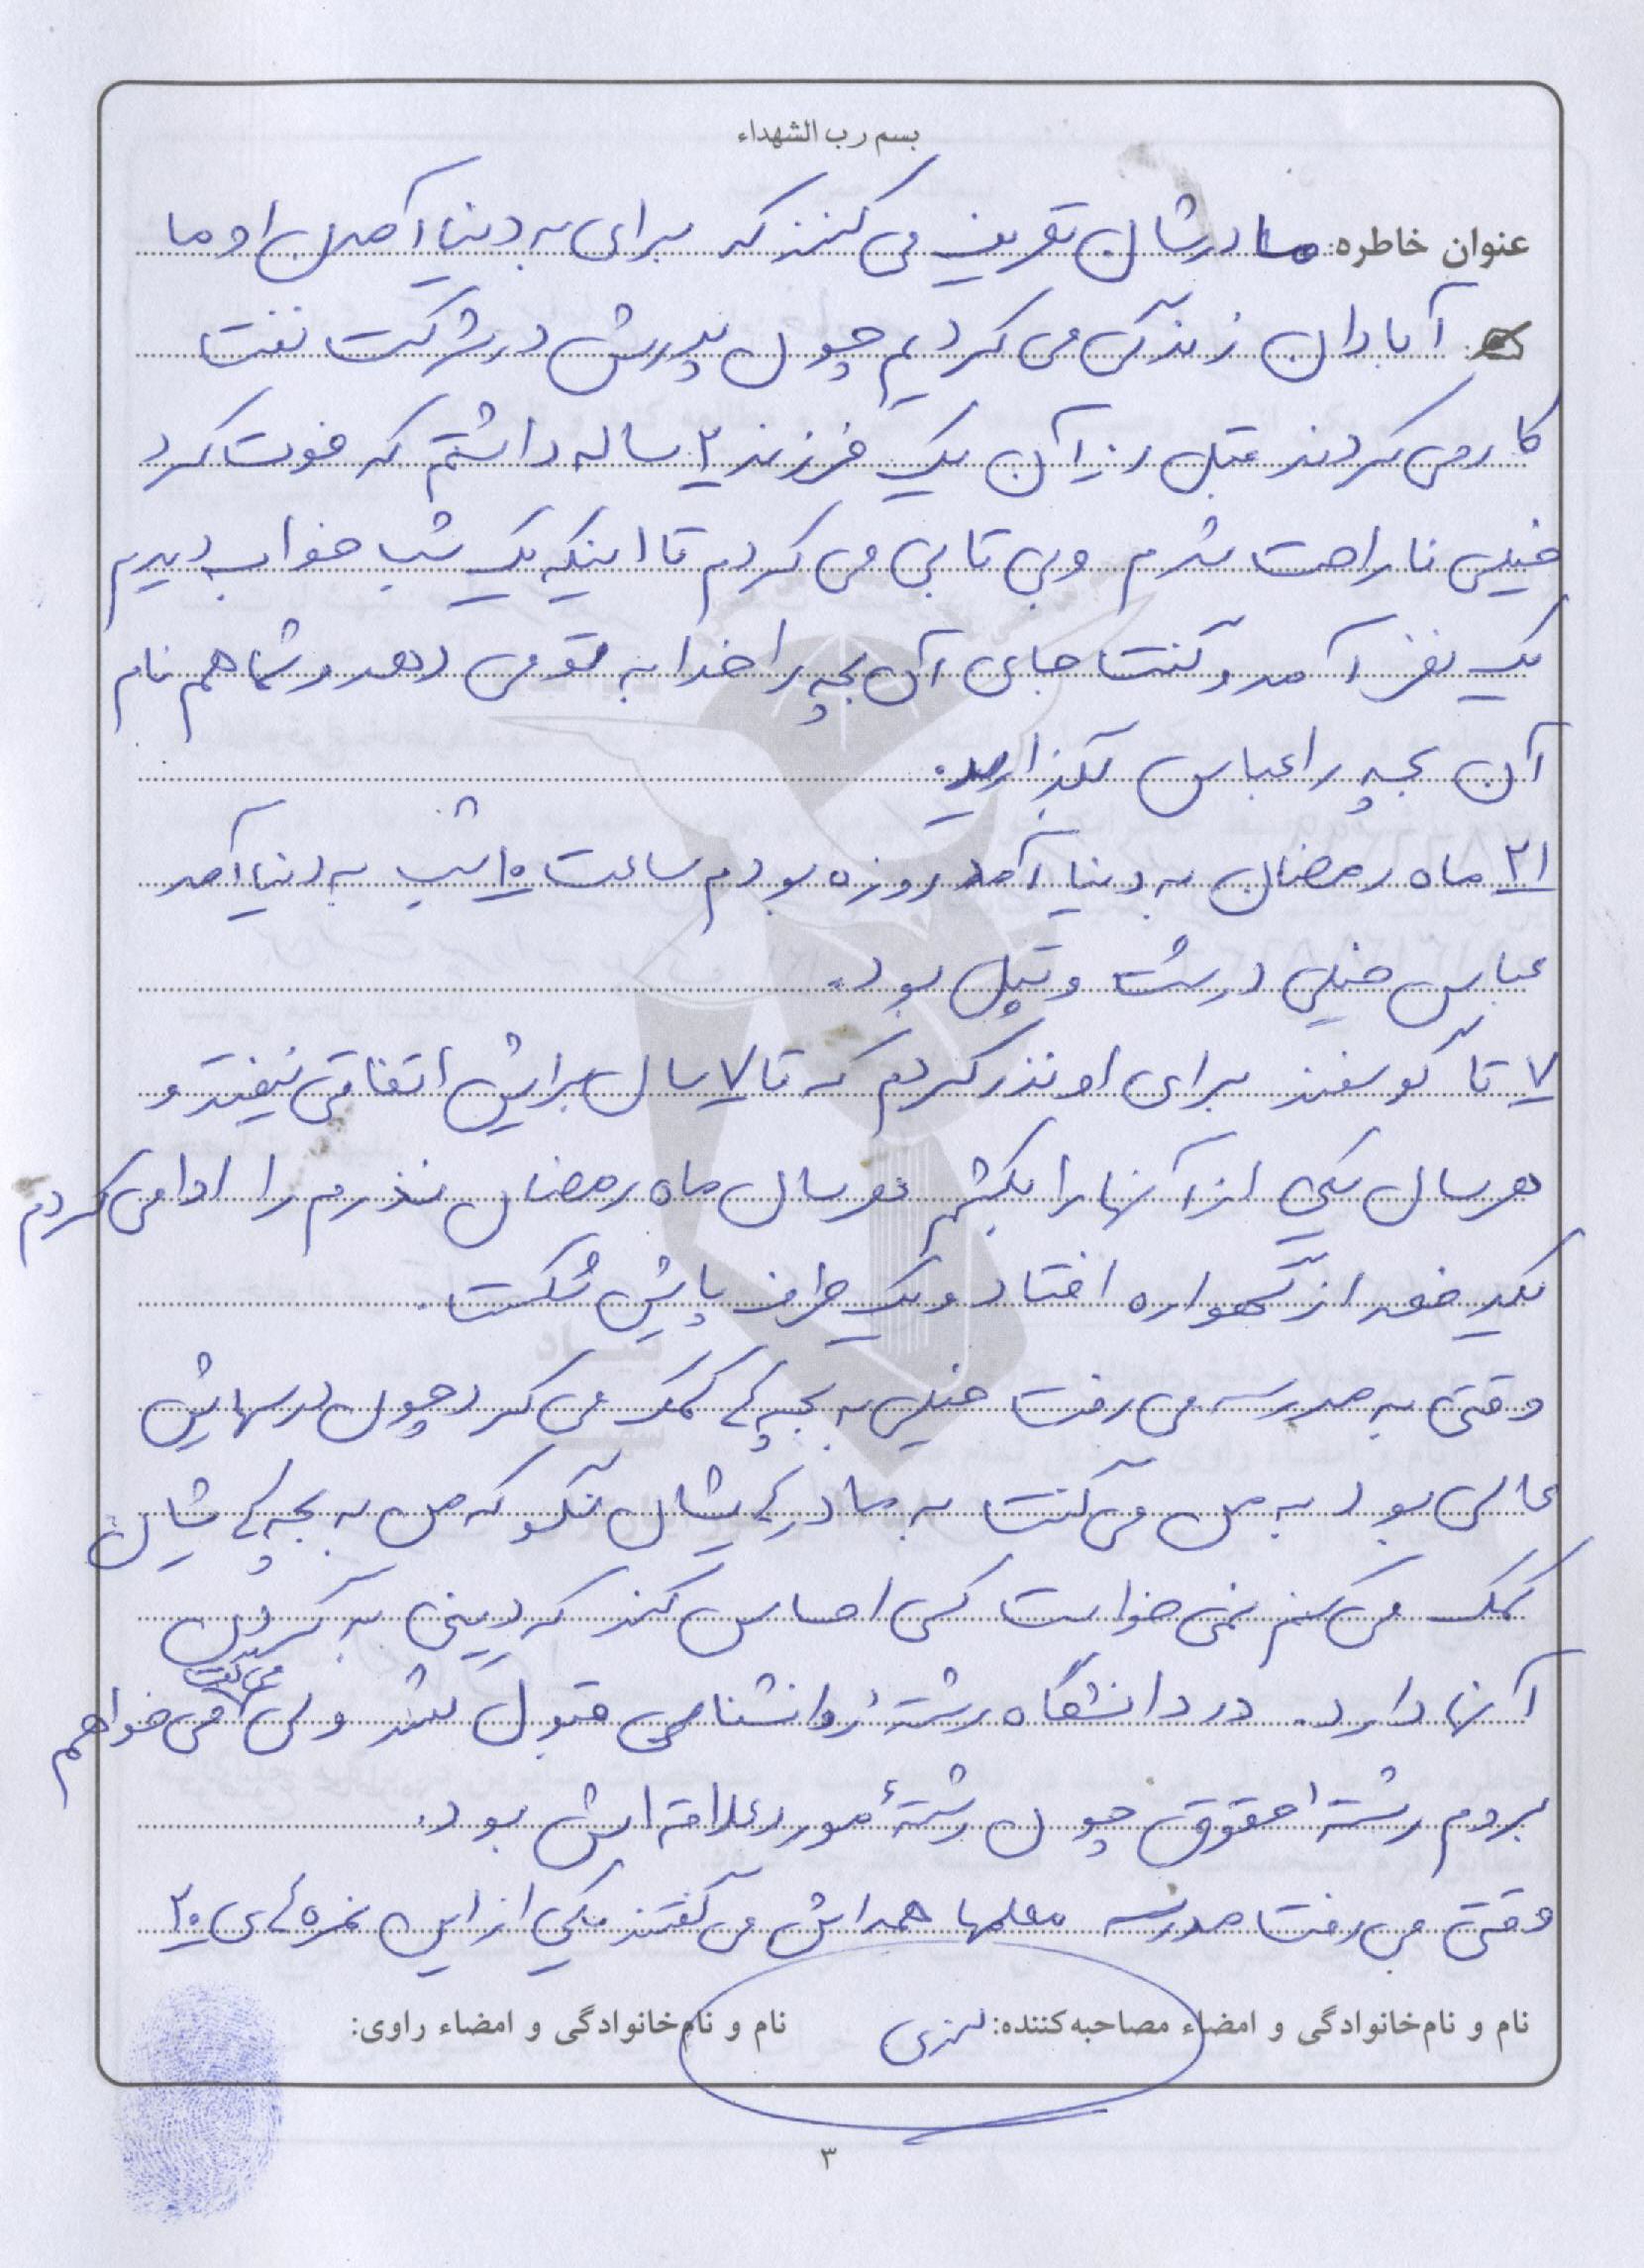 بسم رب الشهداء
عنوان خاطره: مادرشان تعریف می کنند که برای به دنیا آمدن او ما
آبادان زندگی می کردیم چون پدرش در شرکت نفت
کار می کردند قبل از آن یک فرزند ۲ ساله داشتم که فوت کرد
خیلی ناراحت شدم و بی تابی می کردم تا اینکه یک شب خواب دیدم
یک نفر آمد و گفت جای آن بچه را خدا به تو می دهد و شما هم نام
آن بچه را عباس بگذارید.
۲۱ ماه رمضان به دنیا آمد روزه بودم ساعت ۱۰ شب به دنیا آمد
عباس خیلی درشت و تپل بود.
۷ تا گوسفند برای او نذر کردم که تا ۷ سال برایش اتفاقی نیفتد و
هر سال یکی از آنها را بکشم هر سال ماه رمضان نذرم را ادا می کردم
یکدفعه از گهواره افتاد و یک طرف پایش شکست.
وقتی به مدرسه می رفت خیلی به بچه ها کمک می کرد چون درسهایش
عالی بود به من می گفت به مادرهایشان نگو که من به بچه هایشان
کمک می کنم نمی خواست کسی احساس کند که دینی به گردن
آنها دارد. در دانشگاه رشتهٔ روانشناسی قبول شد ولی می گفت می خواهم
بروم رشتهٔ حقوق چون رشتهٔ مورد علاقه اش بود.
وقتی می رفت مدرسه معلمها همه اش می گفتند یکی از این نمره های ۲۰
نام و نام‌خانوادگی و امضاء مصاحبه‌کننده:
نام و نام‌خانوادگی و امضاء راوی:
۳